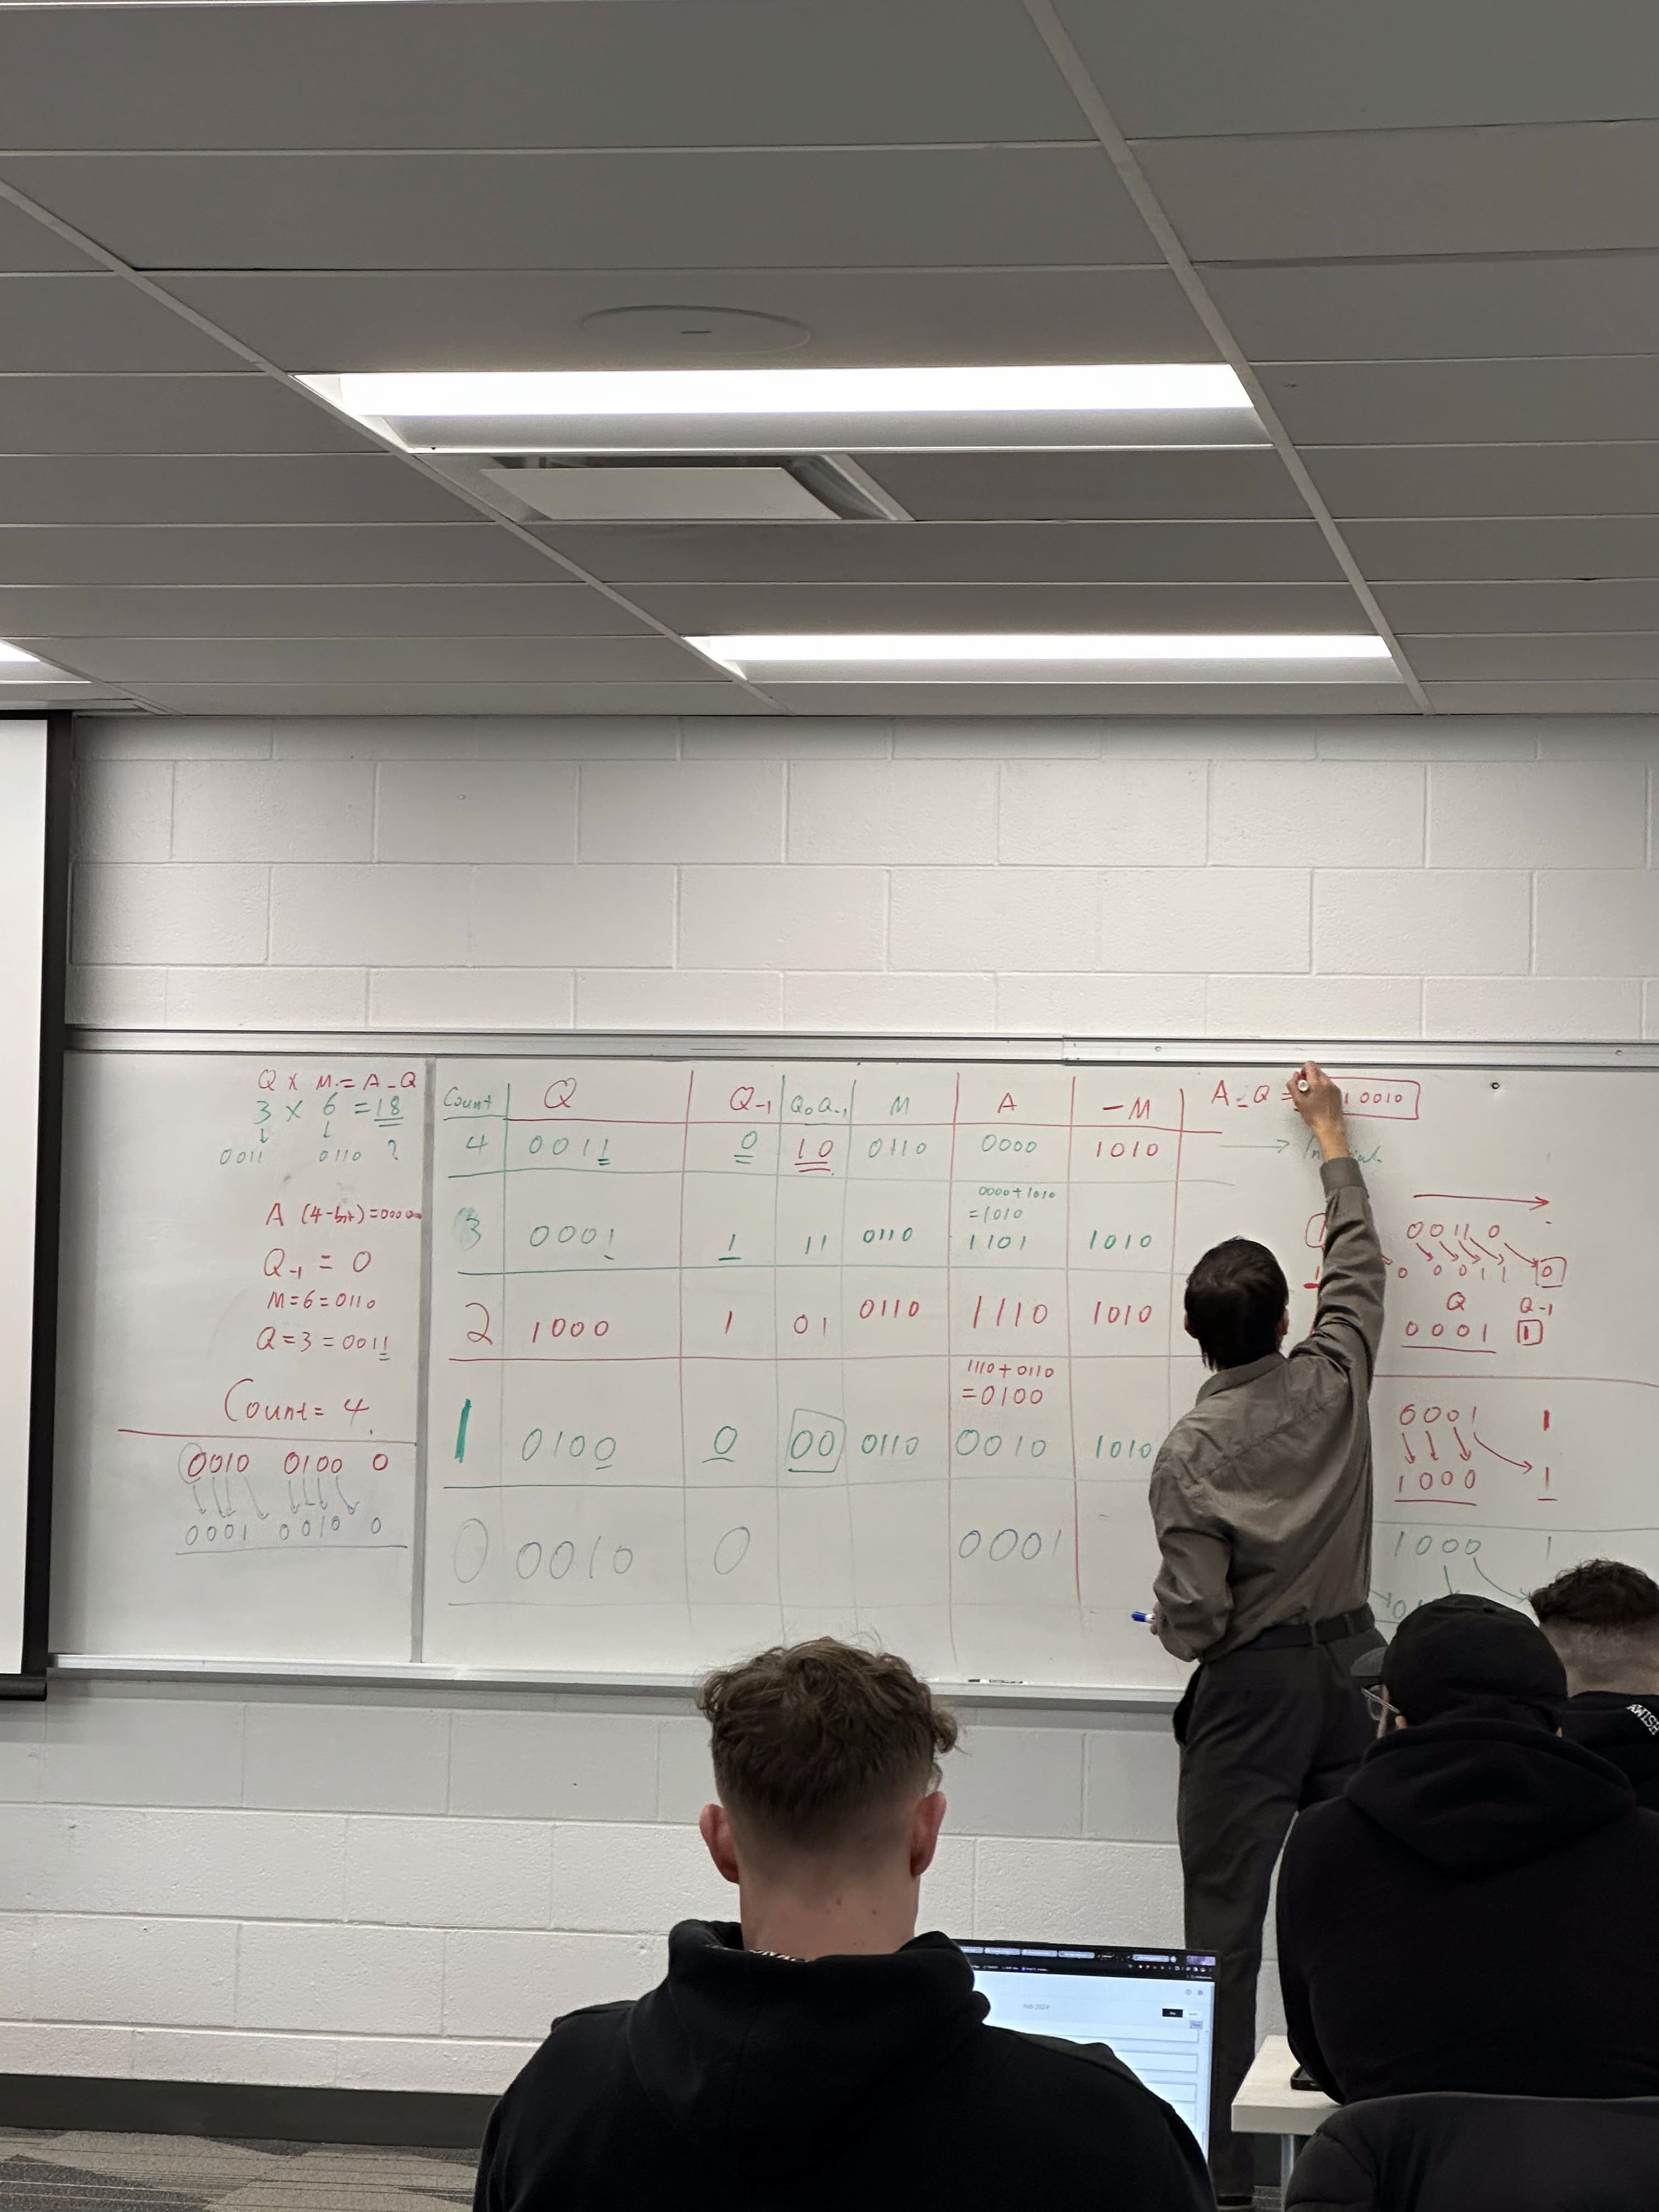 Q × M = A_Q
3 × 6 = 18
0011 0110 ?
A (4-bit) = 0000
Q-1 = 0
M=6=0110
Q=3=0011
Count= 4
0010 0100 0
0001 0010 0
Count Q Q-1 Q0Q-1 M A -M
4 0011 0 10 0110 0000 1010
0000+1010
=1010
3 0001 1 11 0110 1101 1010
2 1000 1 01 0110 1110 1010
1110+0110
=0100
1 0100 0 00 0110 0010 1010
0 0010 0 0001
A_Q = 10010
0011 0
0 0 0 1 1 0
Q Q-1
0001 1
0001 1
1000 1
1000 1